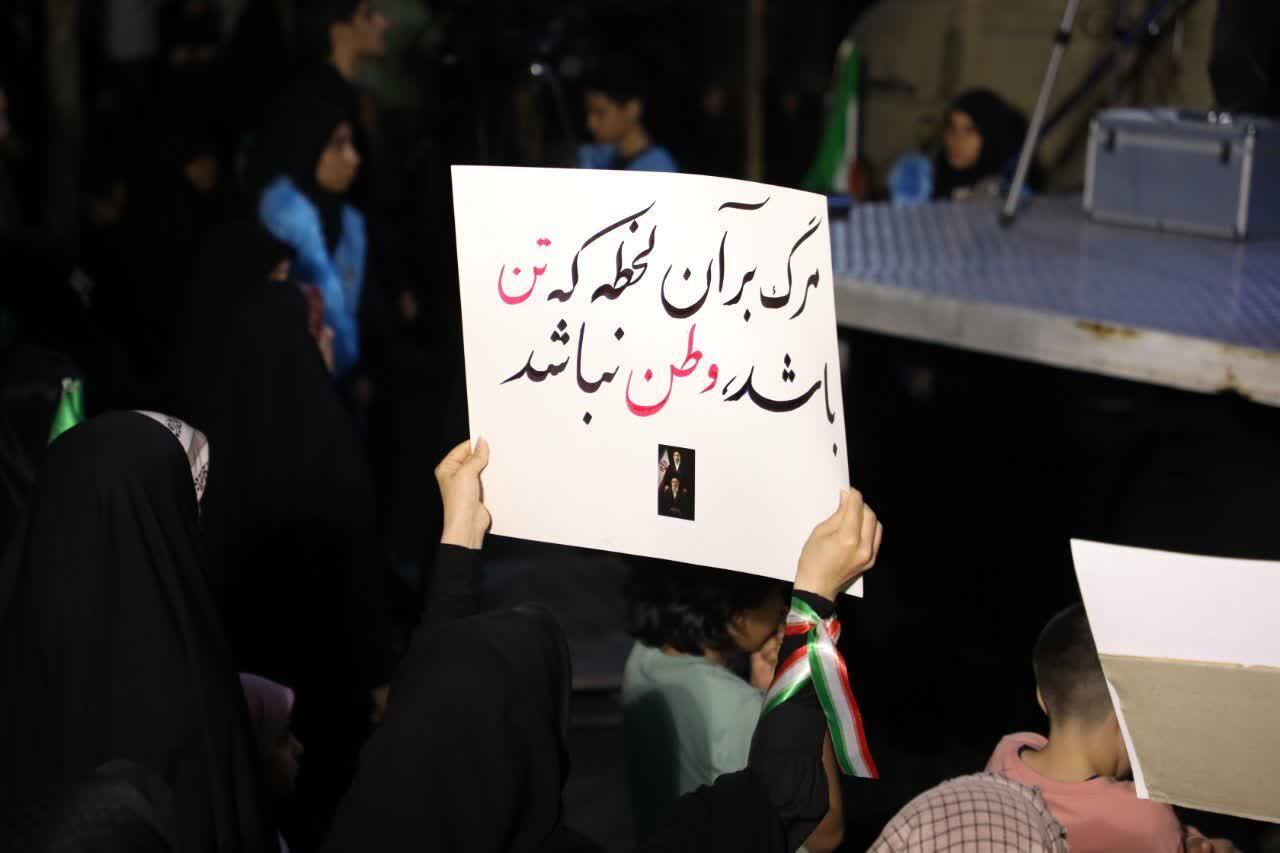 مرگ بر آن لحظه که تن
باشد، وطن نباشد